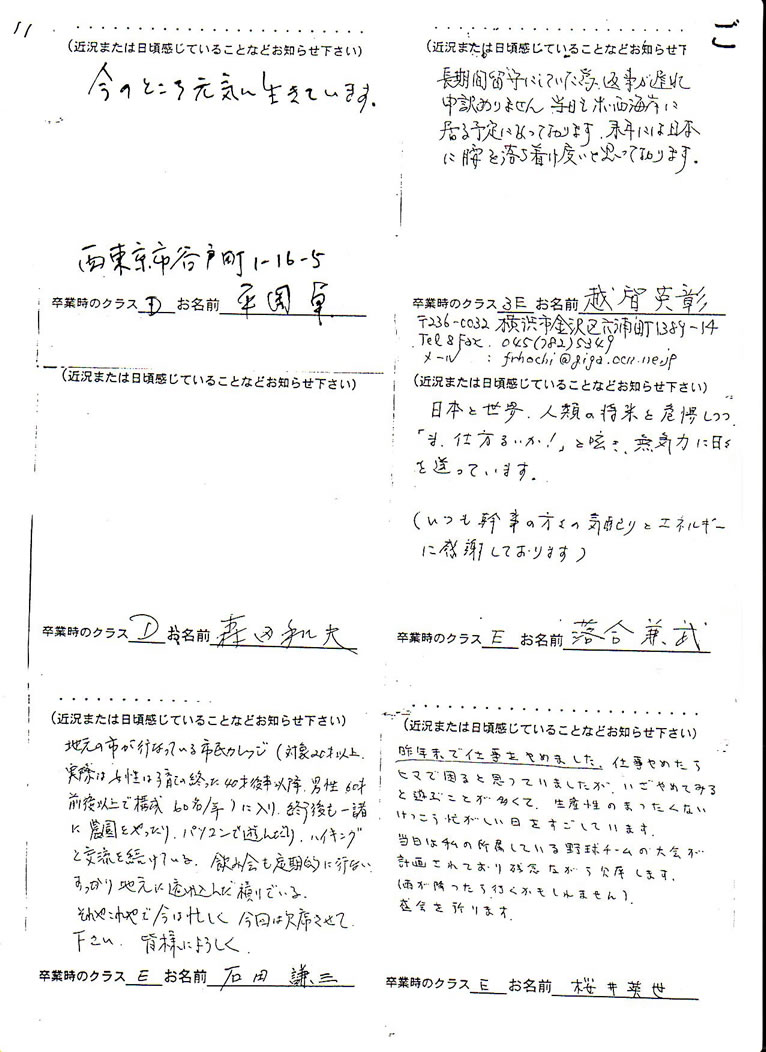 11
(近況または日頃感じていることなどお知らせ下さい)
今のところ元気に生きています.
西東京市谷戸町1-16-5
卒業時のクラス D お名前 平岡卓
ご
(近況または日頃感じていることなどお知らせ下
長期間留守にしていた為、返事が遅れ
申訳ありません 当日も米西海岸に
居る予定になっております. 来年には日本
に腰を落ち着け度いと思っております.
卒業時のクラス 3E お名前 越智英彰
〒236-0032 横浜市金沢区六浦町1389-14
Tel & Fax. 045(782)5349
メール : frhochi@giga.ocn.ne.jp
(近況または日頃感じていることなどお知らせ下さい)
卒業時のクラス D お名前 森田和夫
(近況または日頃感じていることなどお知らせ下さい)
日本と世界、人類の将来を危惧しつつ
「ま、仕方ないか!」と呟き、無気力に日々
を送っています.
(いつも幹事の方々の気配りとエネルギー
に感謝しております)
卒業時のクラス E お名前 落合兼武
(近況または日頃感じていることなどお知らせ下さい)
地元の市が行なっている市民カレッジ(対象20才以上
実際は女性は子育ての終った40才後半以降、男性60才
前後以上で構成 60名/年)に入り、終了後も一諸
に農園をやったり、パソコンで遊んだり、ハイキング
と交流を続けている. 飲み会も定期的に行ない
すっかり地元に溶け込んだ積りでいる.
それやこれやで今は忙しく 今回は欠席させて
下さい. 皆様によろしく.
卒業時のクラス E お名前 石田謙三
(近況または日頃感じていることなどお知らせ下さい)
昨年末で仕事をやめました. 仕事やめたら
ヒマで困ると思っていましたが、いざやめてみる
と遊ぶことが多くて、生産性のまったくない
けっこう忙がしい日をすごしています.
当日は私の所属している野球チームの大会が
計画されており残念ながら欠席します.
(雨が降ったら行くかもしれません).
盛会を祈ります.
卒業時のクラス E お名前 桜井英世